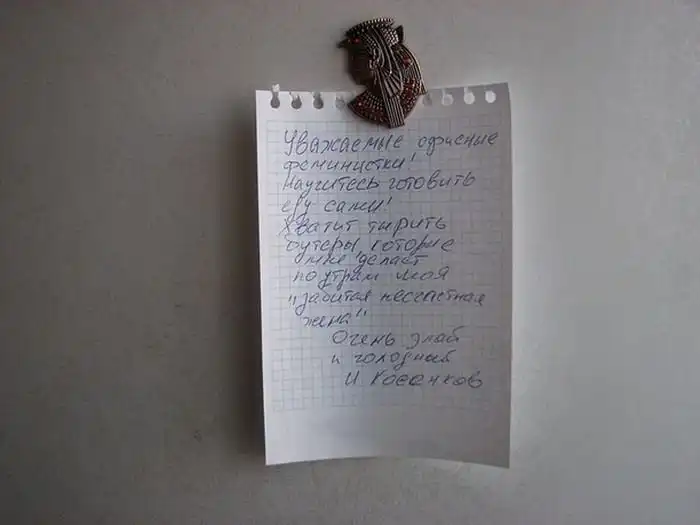 Уважаемые офисные
феминистки!
Научитесь готовить
еду сами!
Хватит тырить
бутеры, которые
мне делает
по утрам моя
"забитая несчастная
жена"
Очень злой
и голодный
И Косенков